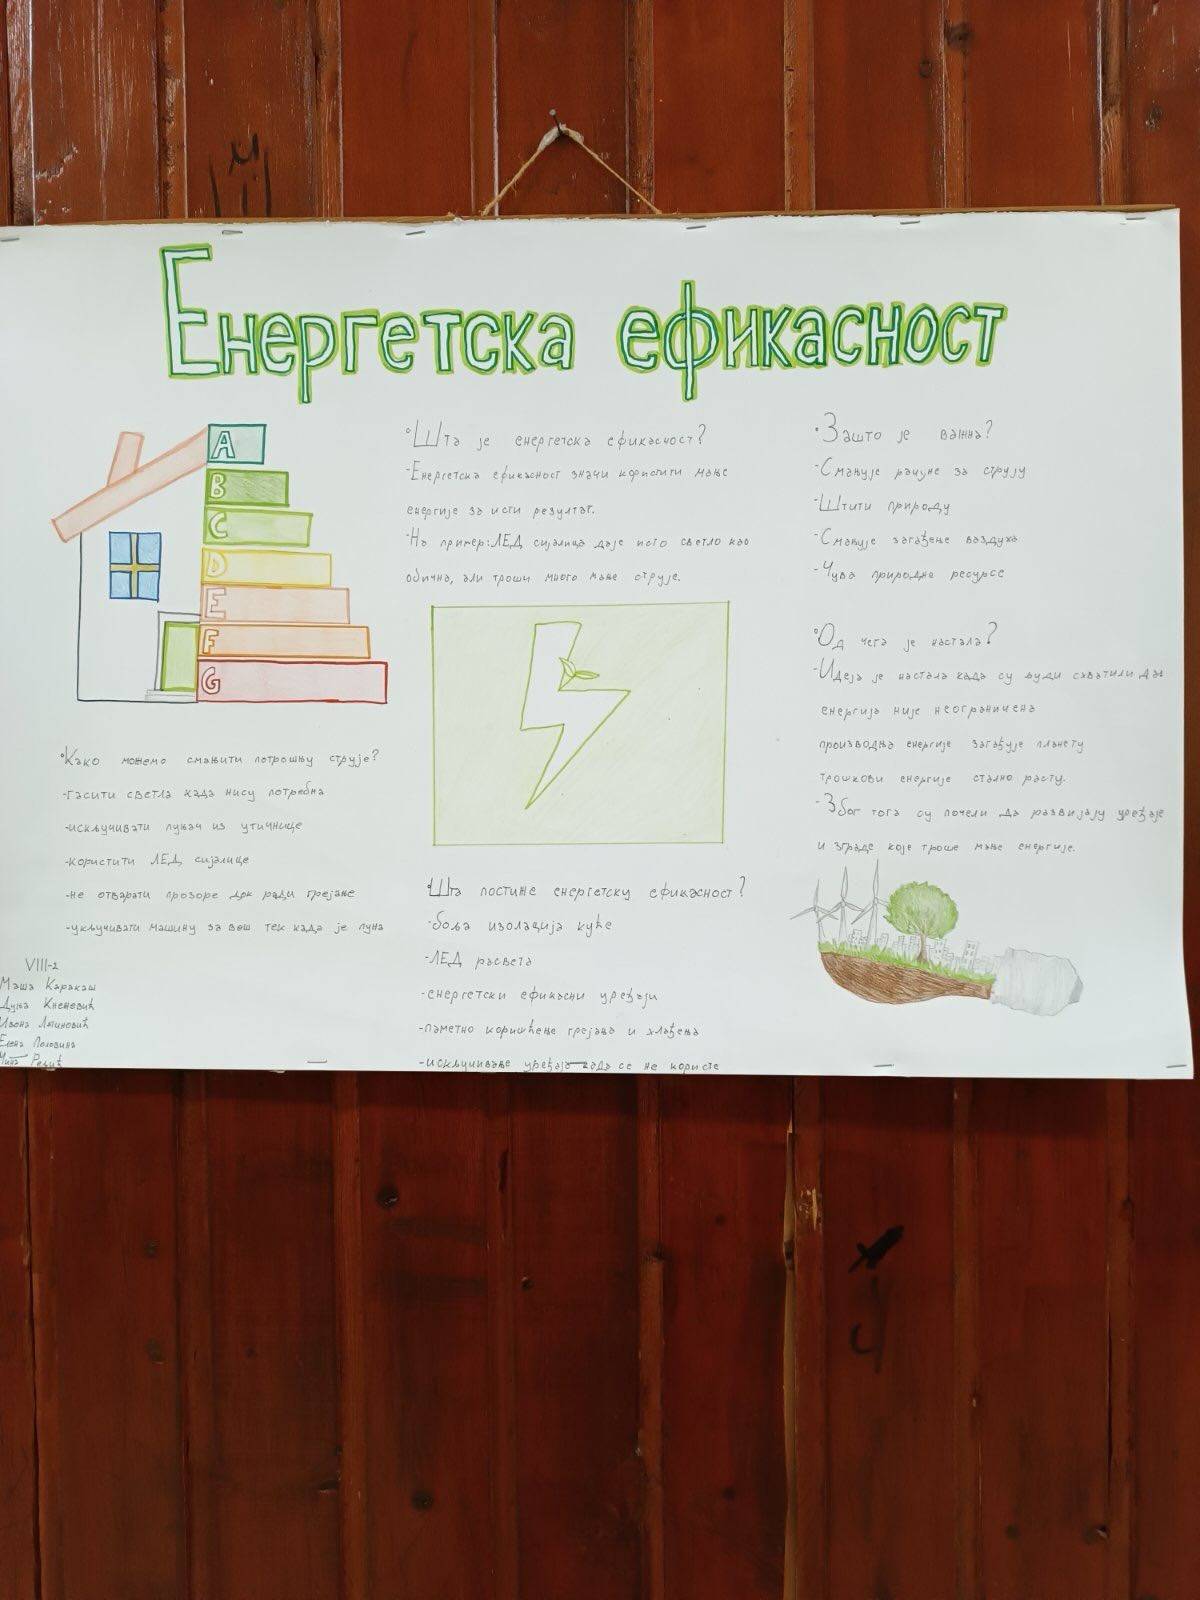 Енергетска ефикасност
A
B
C
D
E
F
G
Шта је енергетска ефикасност?
-Енергетска ефикасност значи користити мање
енергије за исти резултат.
-На пример: ЛЕД сијалица даје исто светло као
обична, али троши много мање струје.
Зашто је важна?
-Смањује рачуне за струју
-Штити природу
-Смањује загађење ваздуха
-Чува природне ресурсе
Од чега је настала?
-Идеја је настала када су људи схватили да
енергија није неограничена
производња енергије загађује планету
трошкови енергије стално расту.
-Због тога су почели да развијају уређаје
и зграде које троше мање енергије.
Како можемо смањити потрошњу струје?
-гасити светла када нису потребна
-искључивати пуњач из утичнице
-користити ЛЕД сијалице
-не отварати прозоре док ради грејање
-укључивати машину за веш тек када је пуна
Шта постиже енергетску ефикасност?
-боља изолација куће
-ЛЕД расвета
-енергетски ефикасни уређаји
-паметно коришћење грејања и хлађења
-искључивање уређаја када се не користе
VIII-2
Маша Каракаш
Дуња Кнежевић
Ивона Латиновић
Елена Половина